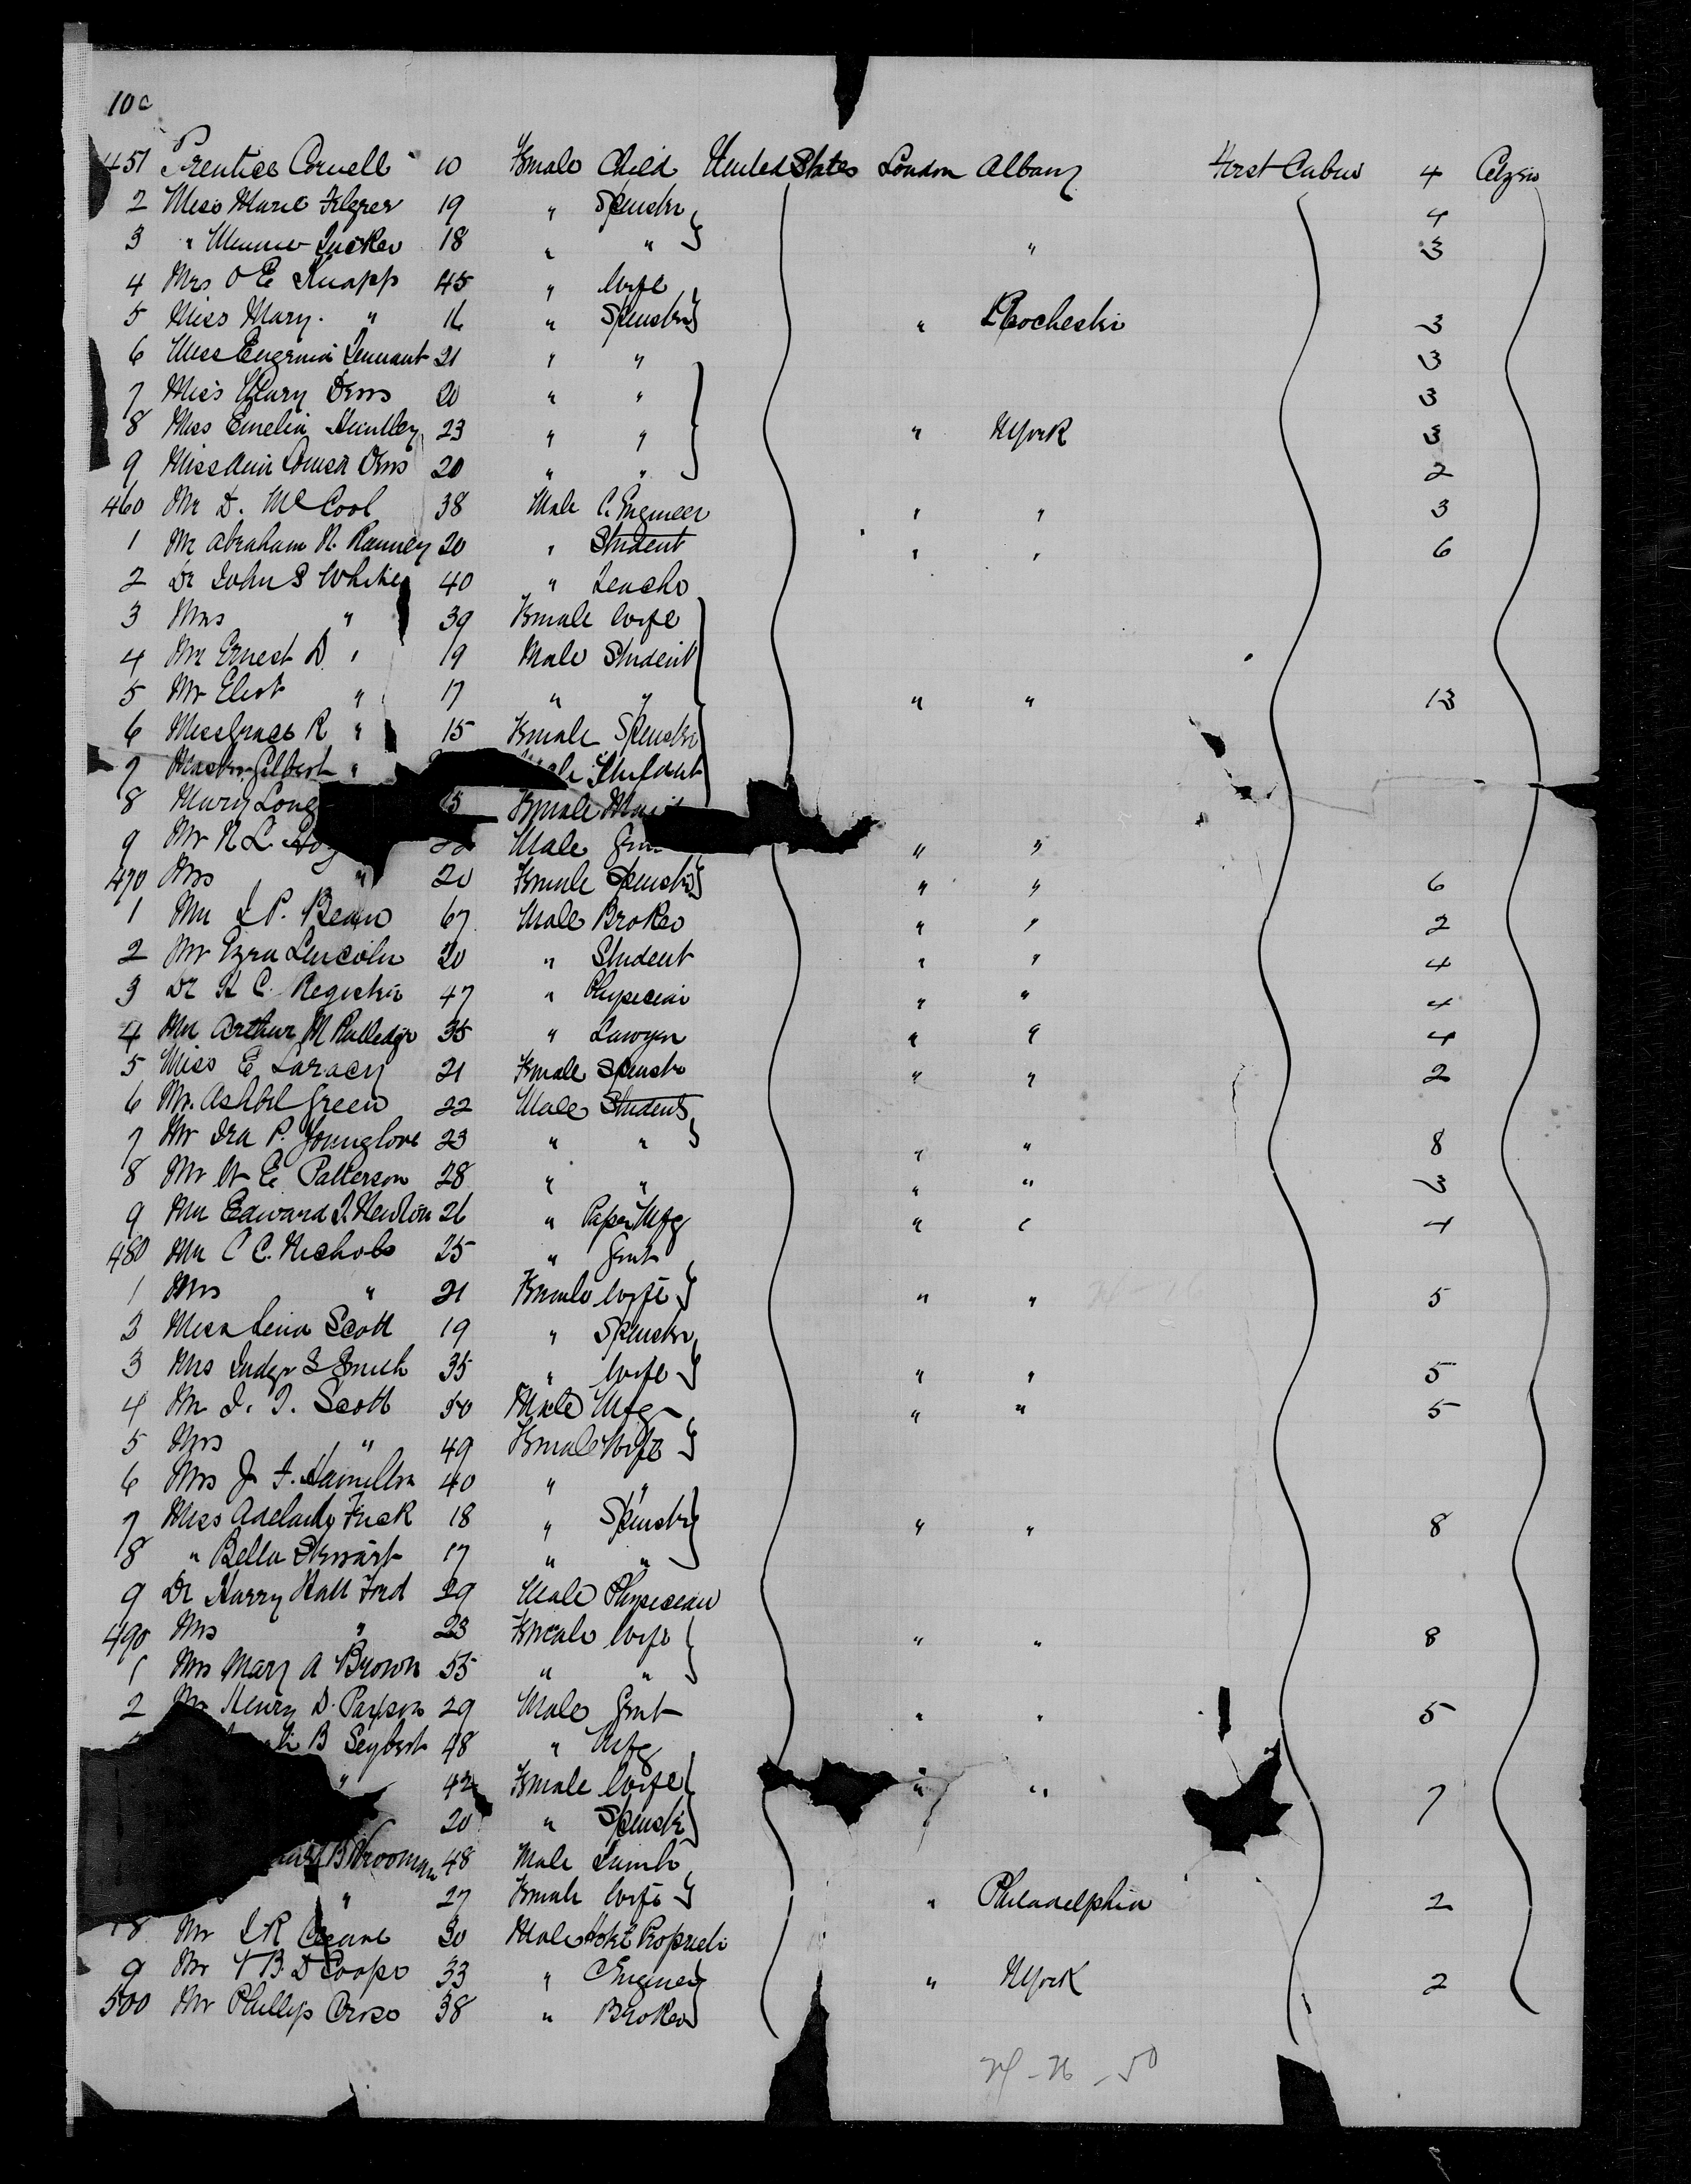 10c
451 Prentice Cornell 10 Female Child United States London Albany First Cabin 4 Citizen
2 Miss Marie 19 " Spinster 4
3 " Minnie Tucker 18 " " " 3
4 Mrs O E Knapp 45 " Wife
5 Miss Mary " 16 " Spinster " Rochester 3
6 Miss Eugenia Tennant 21 " " 3
7 Miss Mary Dens 20 " " 3
8 Miss Emelia Huntley 23 " " " N York 3
9 Miss Ann Louisa Dens 20 " " 2
460 Mr D. McCool 38 Male C. Engineer " " 3
1 Mr Abraham N. Ranney 20 " Student " " 6
2 Dr John S White 40 " Teacher
3 Mrs " 39 Female Wife
4 Mr Ernest D. " 19 Male Student
5 Mr Eliot " 17 " " " " 13
6 Miss Grace R " 15 Female Spinster
7 Master Gilbert " Student
8 Mary Long 15 Female
9 Mr N L. Male " "
470 Mrs " 20 Female Spinster " " 6
1 Mr I P. Bean 67 Male Broker " " 2
2 Mr Ezra Lincoln 20 " Student " " 4
3 Dr H C. Register 47 " Physician " " 4
4 Mr Arthur M Rutledge 35 " Lawyer " " 4
5 Miss E Laracy 21 Female Spinster " " 2
6 Mr. Ashbel Green 22 Male Student
7 Mr Ira P. Younglove 23 " " " " 8
8 Mr W E Patterson 28 " " " " 3
9 Mr Edward I. Newton 26 " Paper Mfg " " 4
480 Mr C C. Nichols 25 " Gent
1 Mrs " 21 Female Wife " " 5
3 Miss Lena Scott 19 " Spinster
3 Mrs Judge Smith 35 " Wife " " 5
4 Mr I. I. Scott 50 Male Mfg " " 5
5 Mrs " 49 Female Wife
6 Mrs J. F. Hamilton 40 " "
7 Miss Adelaide Fisk 18 " Spinster " " 8
8 " Bella Stewart 17 " "
9 Dr Harry Hall Ford 29 Male Physician
490 Mrs " 23 Female Wife " " 8
1 Mrs Mary A Brown 55 " "
2 Mr Henry D. Parson 29 Male Gent " " 5
B Seybert 48 " Mfg
" 42 Female Wife " " 7
20 " Spinster
B Vrooman 48 Male Lumber
" 27 Female Wife " Philadelphia 2
8 Mr I R 30 Male Hotel Proprietor
9 Mr V B. D Cooper 33 " C Engineer " N York 2
500 Mr Phillip 38 " Broker